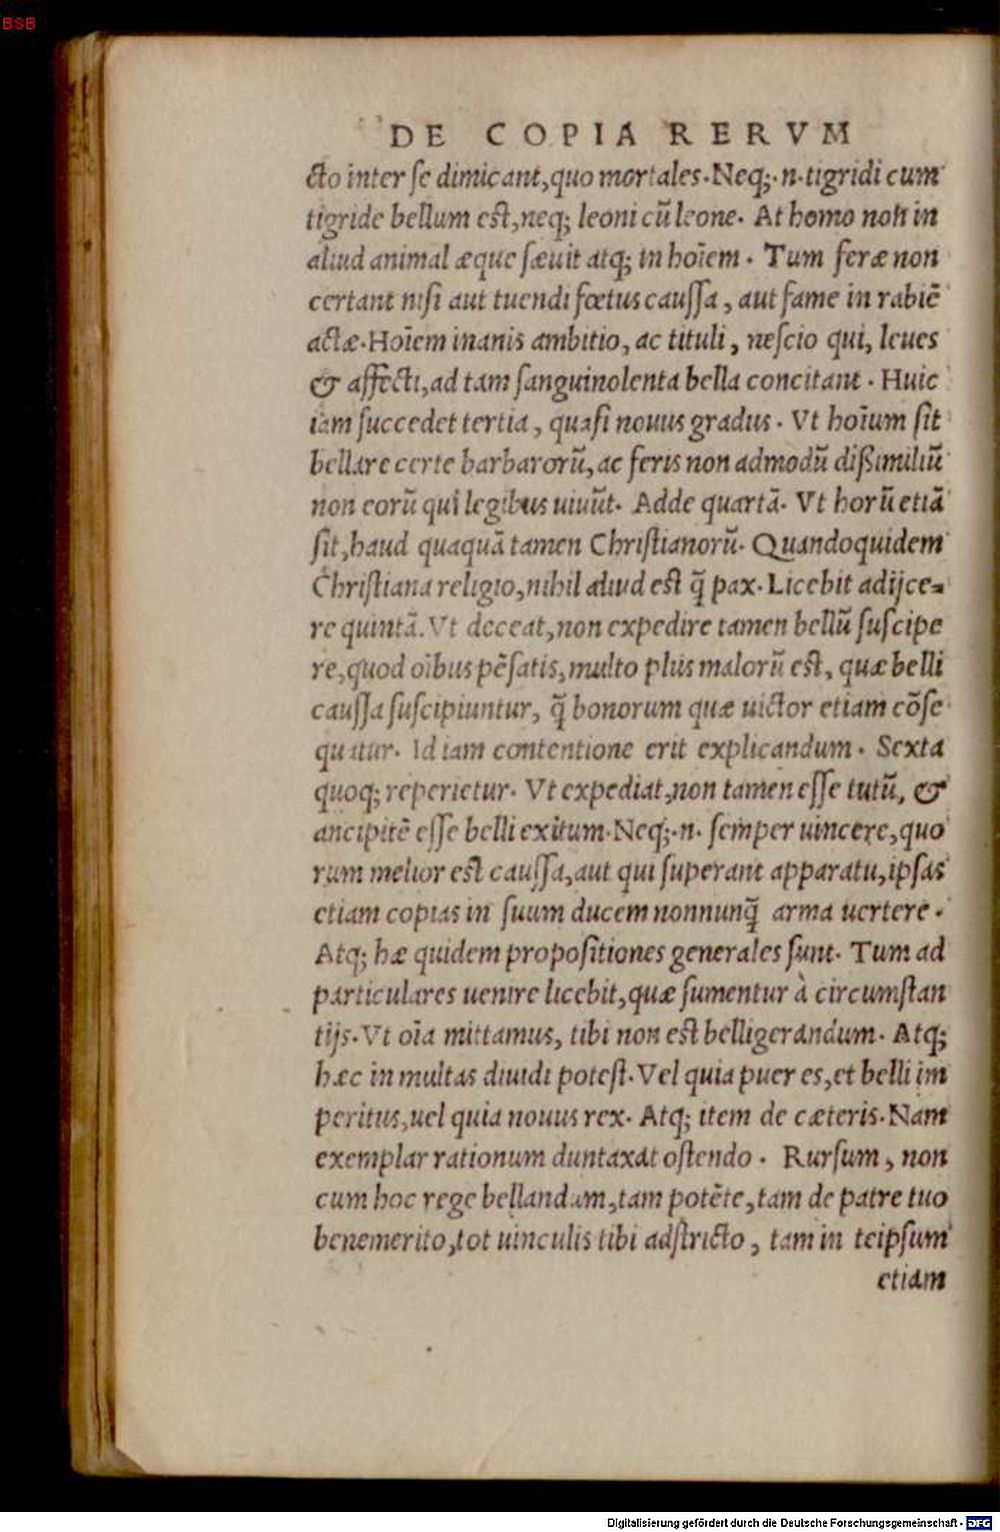 BSB
DE COPIA RERVM
cto inter se dimicant,quo mortales.Neq;.n.tigridi cum
tigride bellum est,neq; leoni cũ leone. At homo non in
aliud animal æque sæuit atq; in hoĩem. Tum feræ non
certant nisi aut tuendi fœtus caussa, aut fame in rabiẽ
actæ.Hoĩem inanis ambitio, ac tituli, nescio qui, leues
& affecti,ad tam sanguinolenta bella concitant. Huic
iam succedet tertia, quasi nouus gradus. Vt hoĩum sit
bellare certe barbarorũ,ac feris non admodũ dißimiliũ
non eorũ qui legibus uiuũt. Adde quartã. Vt horũ etiã
sit,haud quaquã tamen Christianorũ. Quandoquidem
Christiana religio,nihil aliud est q̃ pax.Licebit adijce=
re quintã.Vt deceat,non expedire tamen bellũ suscipe
re,quod oĩbus pẽsatis,multo plus malorũ est, quæ belli
caussa suscipiuntur, q̃ bonorum quæ uictor etiam cõse
quatur. Id iam contentione erit explicandum. Sexta
quoq; reperietur. Vt expediat,non tamen esse tutũ, &
ancipitẽ esse belli exitum.Neq;.n. semper uincere,quo
rum melior est caussa,aut qui superant apparatu,ipsas
etiam copias in suum ducem nonnunq̃ arma uertere.
Atq; hæ quidem propositiones generales sunt. Tum ad
particulares uenire licebit,quæ sumentur à circumstan
tijs.Vt oĩa mittamus, tibi non est belligerandum. Atq;
hæc in multas diuidi potest.Vel quia puer es,et belli im
peritus,uel quia nouus rex. Atq; item de cæteris.Nam
exemplar rationum duntaxat ostendo. Rursum, non
cum hoc rege bellandum,tam potẽte,tam de patre tuo
benemerito,tot uinculis tibi adstricto, tam in teipsum
etiam
Digitalisierung gefördert durch die Deutsche Forschungsgemeinschaft - DFG